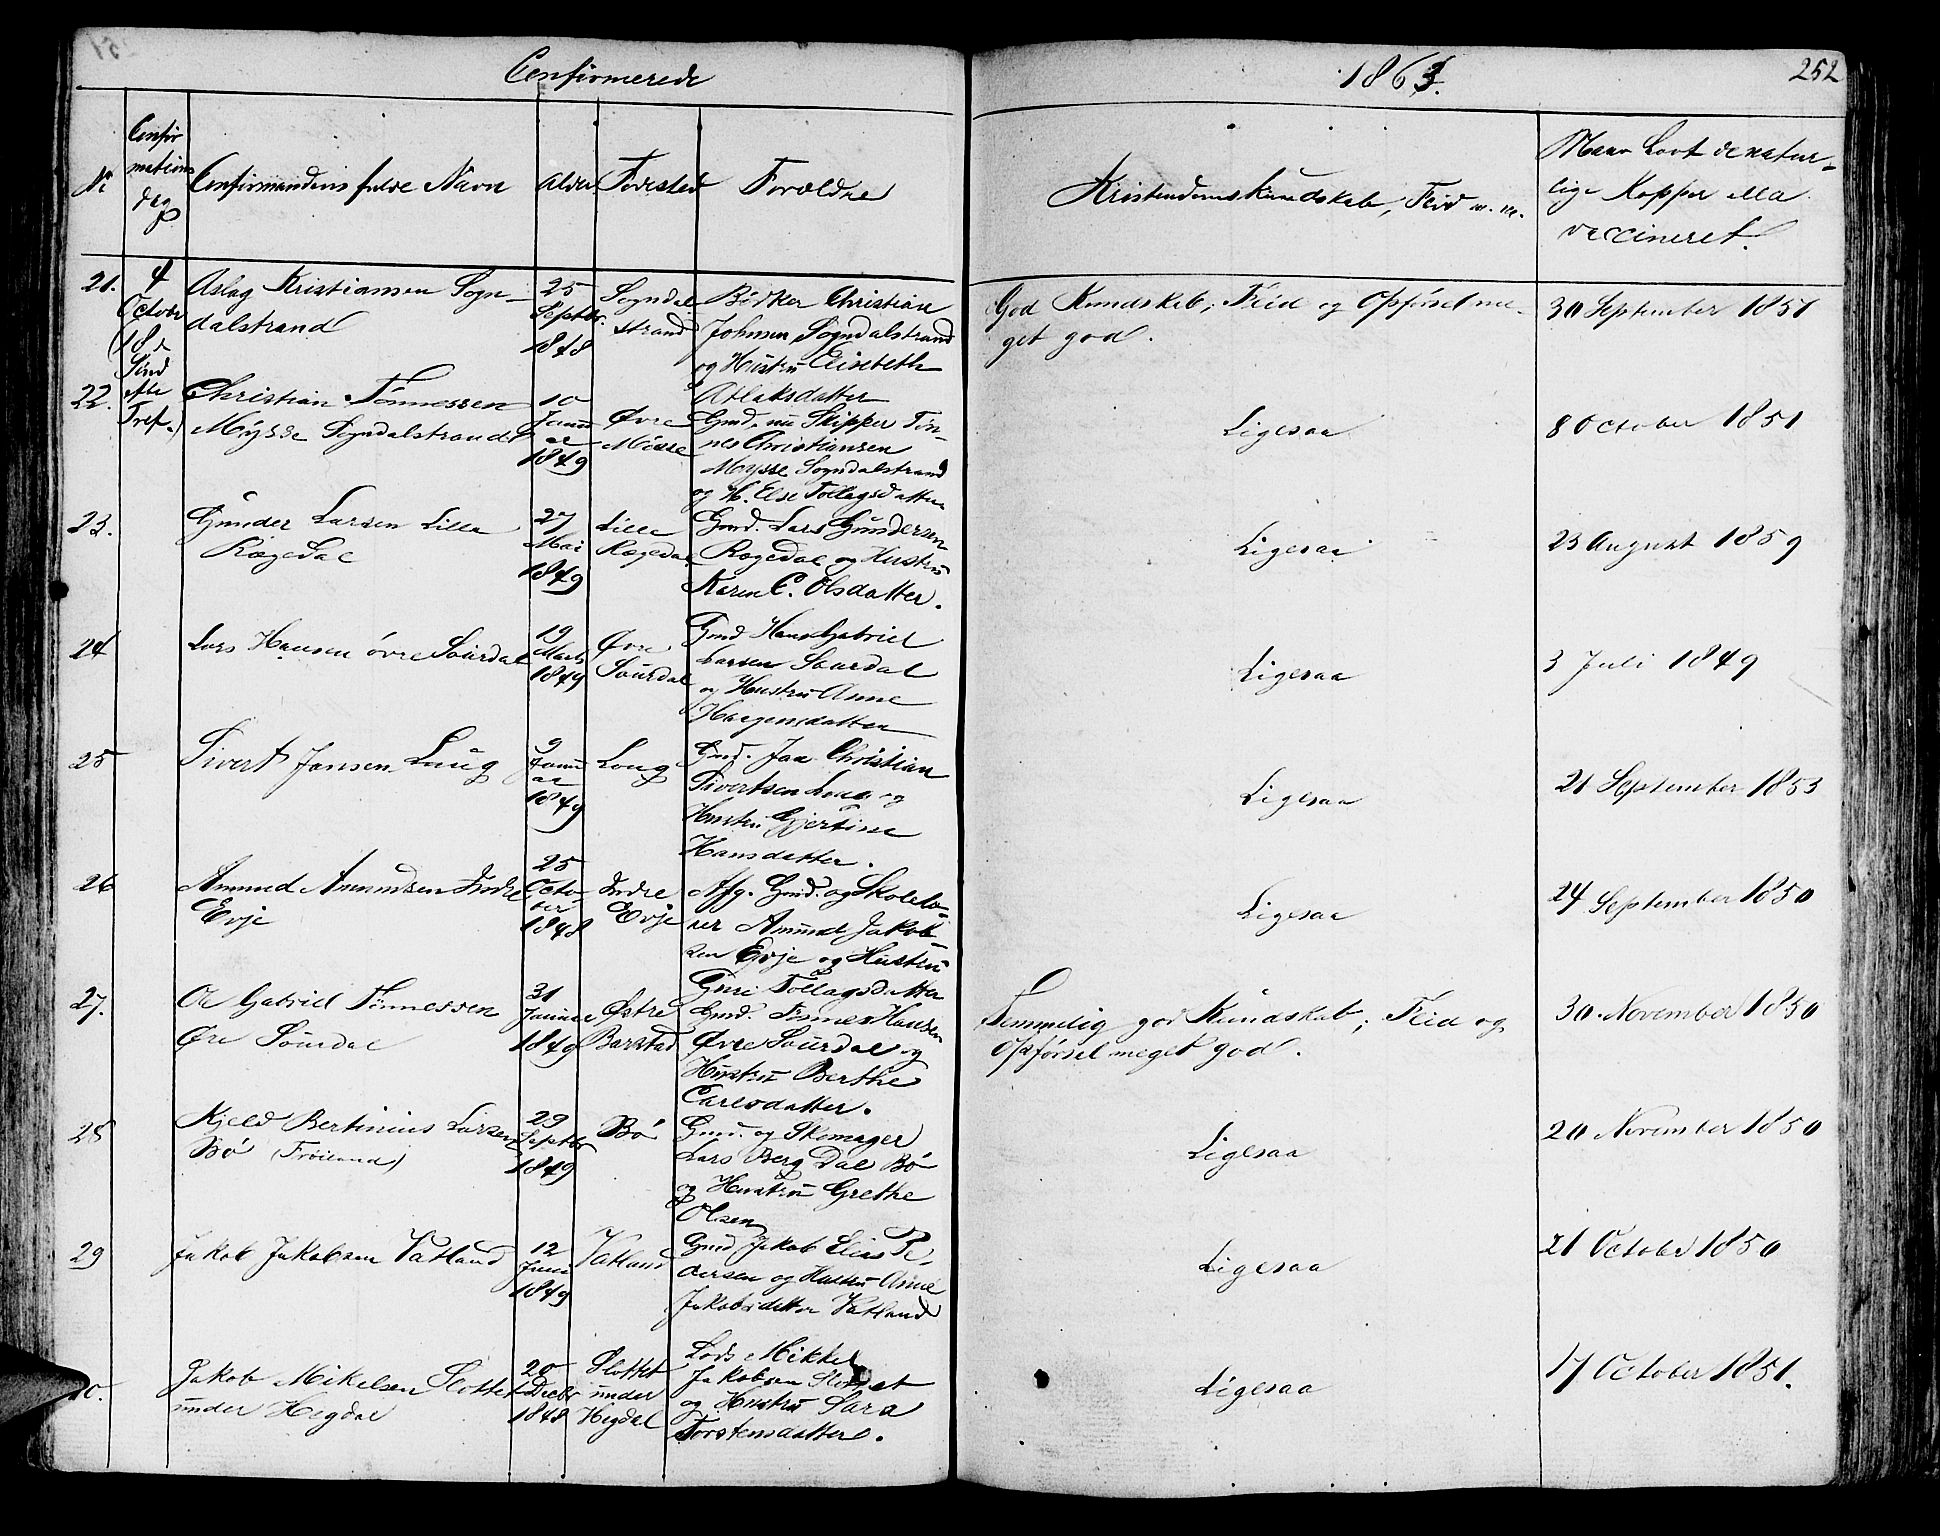 Confirmerede
1863.
252
No
Confir
mations
dag
Confirmandens fulde Navn
Alder
Fødested
Forældre
Kristendomskundskab, Flid m. m.
Naar havt de natur-
lige Kopper ella
vaccineret.
21.
4
October
(18de
Sønd
efter
Tref.)
Aslag Kristiansen Sogn-
dalstrand
25
Septbr.
1848
Sogndal
strand
Bødker Christian
Johnsen Sogndalstrand
og Hustru Elisabeth
Atlaksdatter
God Kundskab; Flid og Opførsel me-
get god.
30 September 1851
22.
Christian Tønnessen
Mysse Sogndalstrand
10
Janu
ar
1849
Øvre
Mysse
Gmd. nu Skipper Tøn-
nes Christiansen
Mysse Sogndalstrand
og H. Else Tollagsdatter
Ligesaa
8 October 1851
23.
Gunder Larsen Lille
Rægedal
27
Mai
1849
Lille
Rægedal
Gmd. Lars Gundersen
Rægedal og Hustru
Karen C. Olsdatter.
Ligesaa
23 August 1859
24
Lars Hansen øvre Saurdal
19
Marts
1849
Øvre
Saurdal
Gmd Hans Gabriel
Larsen Saurdal
og Hustru Anne
Haagensdatter
Ligesaa
3 Juli 1849
25
Sivert Jansen Laug
9
Janu
ar
1849
Laug
Gmd. Jan Christian
Sivertsen Laug og
Hustru Gjertine
Hansdatter.
Ligesaa
21 September 1853
26
Amund Amundsen Indre
Evje
25
Octo-
ber
1848
Indre
Evje
Afg. Gmd. og Skolelæ-
rer Amund Jakob-
sen Evje og Hustru
Guri Tollagsdatter
Ligesaa
24 September 1850
27.
Ole Gabriel Tønnessen
Øre Saurdal
31
Januar
1849
Østre
Barstad
Gmd. Tønnes Hansen
Øvre Saurdal og
Hustru Berthe
Carlsdatter.
Temmelig god Kundskab; Flid og
Opførsel meget god.
30. November 1850
28
Kjeld Bertinius Larsen
Bø (Frøiland)
29
Septbr
1849
Bø
Gmd. og Skomager
Lars Berg Dal Bø
og Hustru Grethe
Olsen
Ligesaa
20 November 1850
29
Jakob Jakobsen Vatland
12
Juni
1849
Vatland
Gmd Jakob Elias Pe-
dersen og Hustru Anne
Jakobsdatter Vatland
Ligesaa
21 October 1850
Jakob Mikelsen Slottet
under Hegdal
20
Decbr
1848
Slottet
under
Hegdal
Lods Mikkel
Jakobsen Slottet
og Hustru Sara
Torstensdatter.
Ligesaa
17 October 1851.